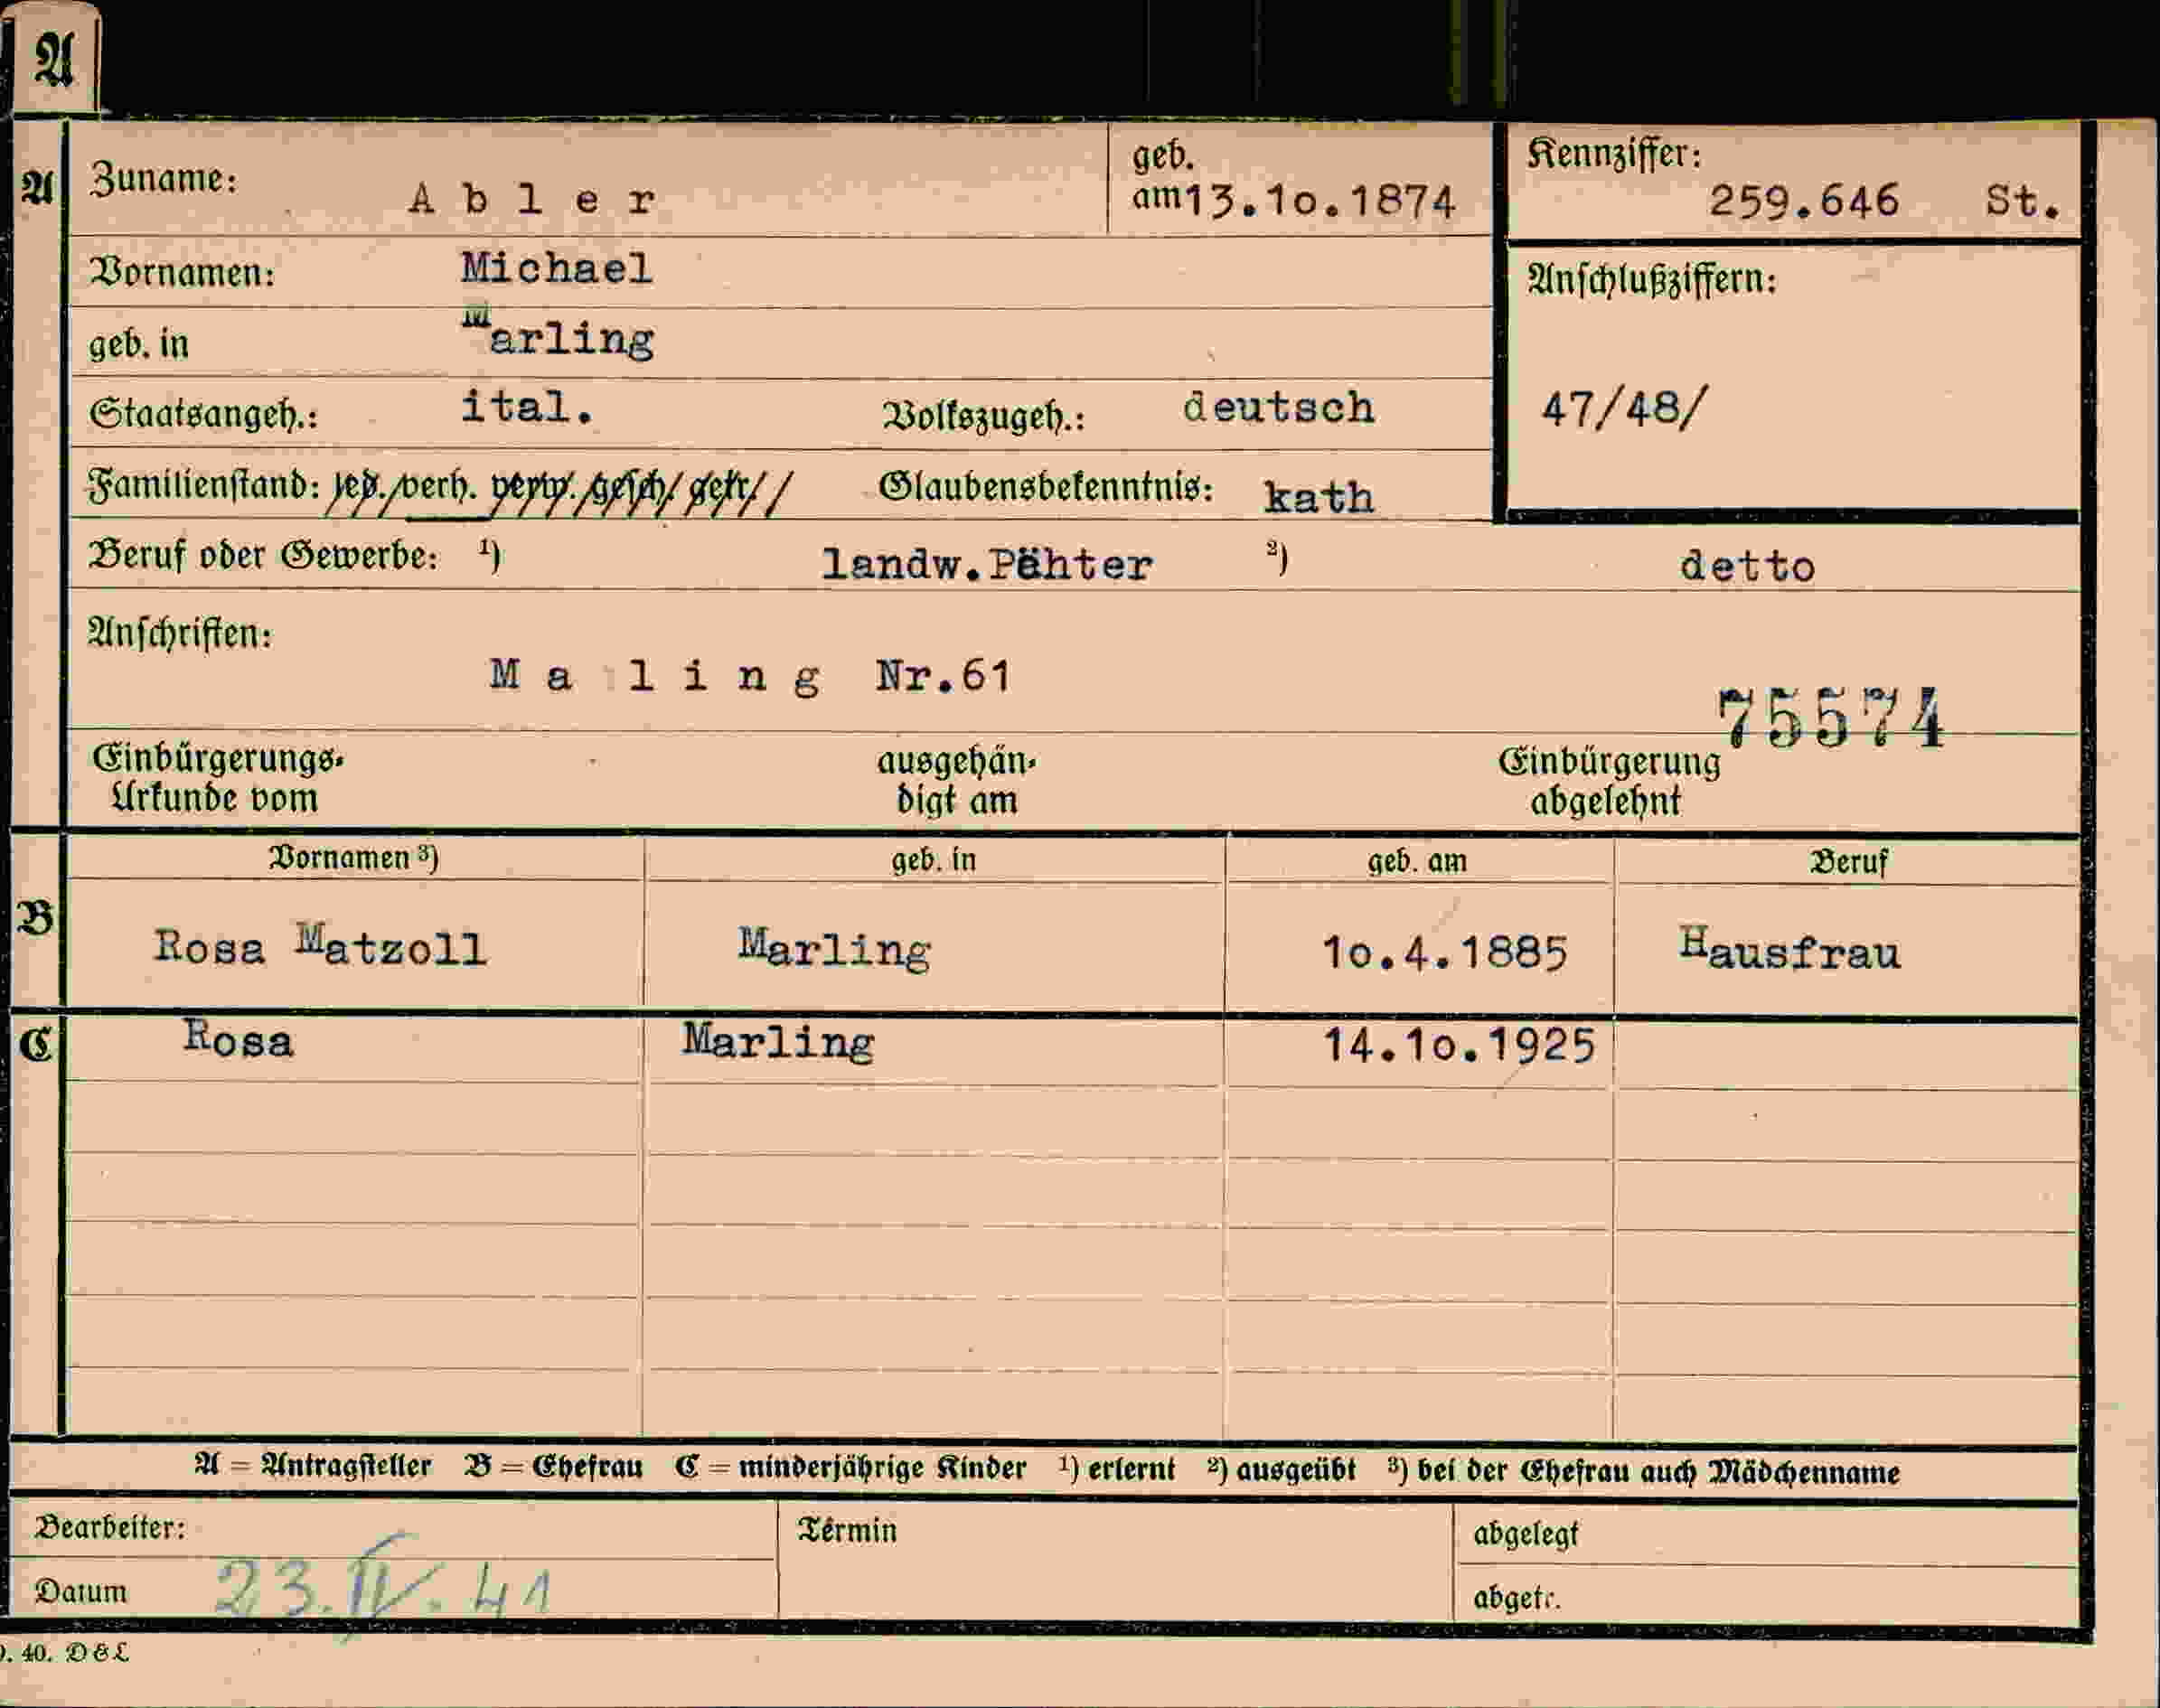 A
A Zuname: A b l e r geb. am 13.1o.1874 Kennziffer: 259.646 St.
Vornamen: Michael Anschlußziffern:
geb. in Marling
Staatsangeh.: ital. Volkszugeh.: deutsch 47/48/
Familienstand: led. verh. verw. gesch. getr. Glaubensbekenntnis: kath
Beruf oder Gewerbe: ¹) landw.Pähter ²) detto
Anschriften:
M a l i n g Nr.61
75574
Einbürgerungs- ausgehän- Einbürgerung
Urkunde vom digt am abgelehnt
Vornamen ³) geb. in geb. am Beruf
B Rosa Matzoll Marling 1o.4.1885 Hausfrau
C Rosa Marling 14.1o.1925
A = Antragsteller B = Ehefrau C = minderjährige Kinder ¹) erlernt ²) ausgeübt ³) bei der Ehefrau auch Mädchenname
Bearbeiter: Termin abgelegt
Datum 23.IV.41 abgetr.
40. D & L